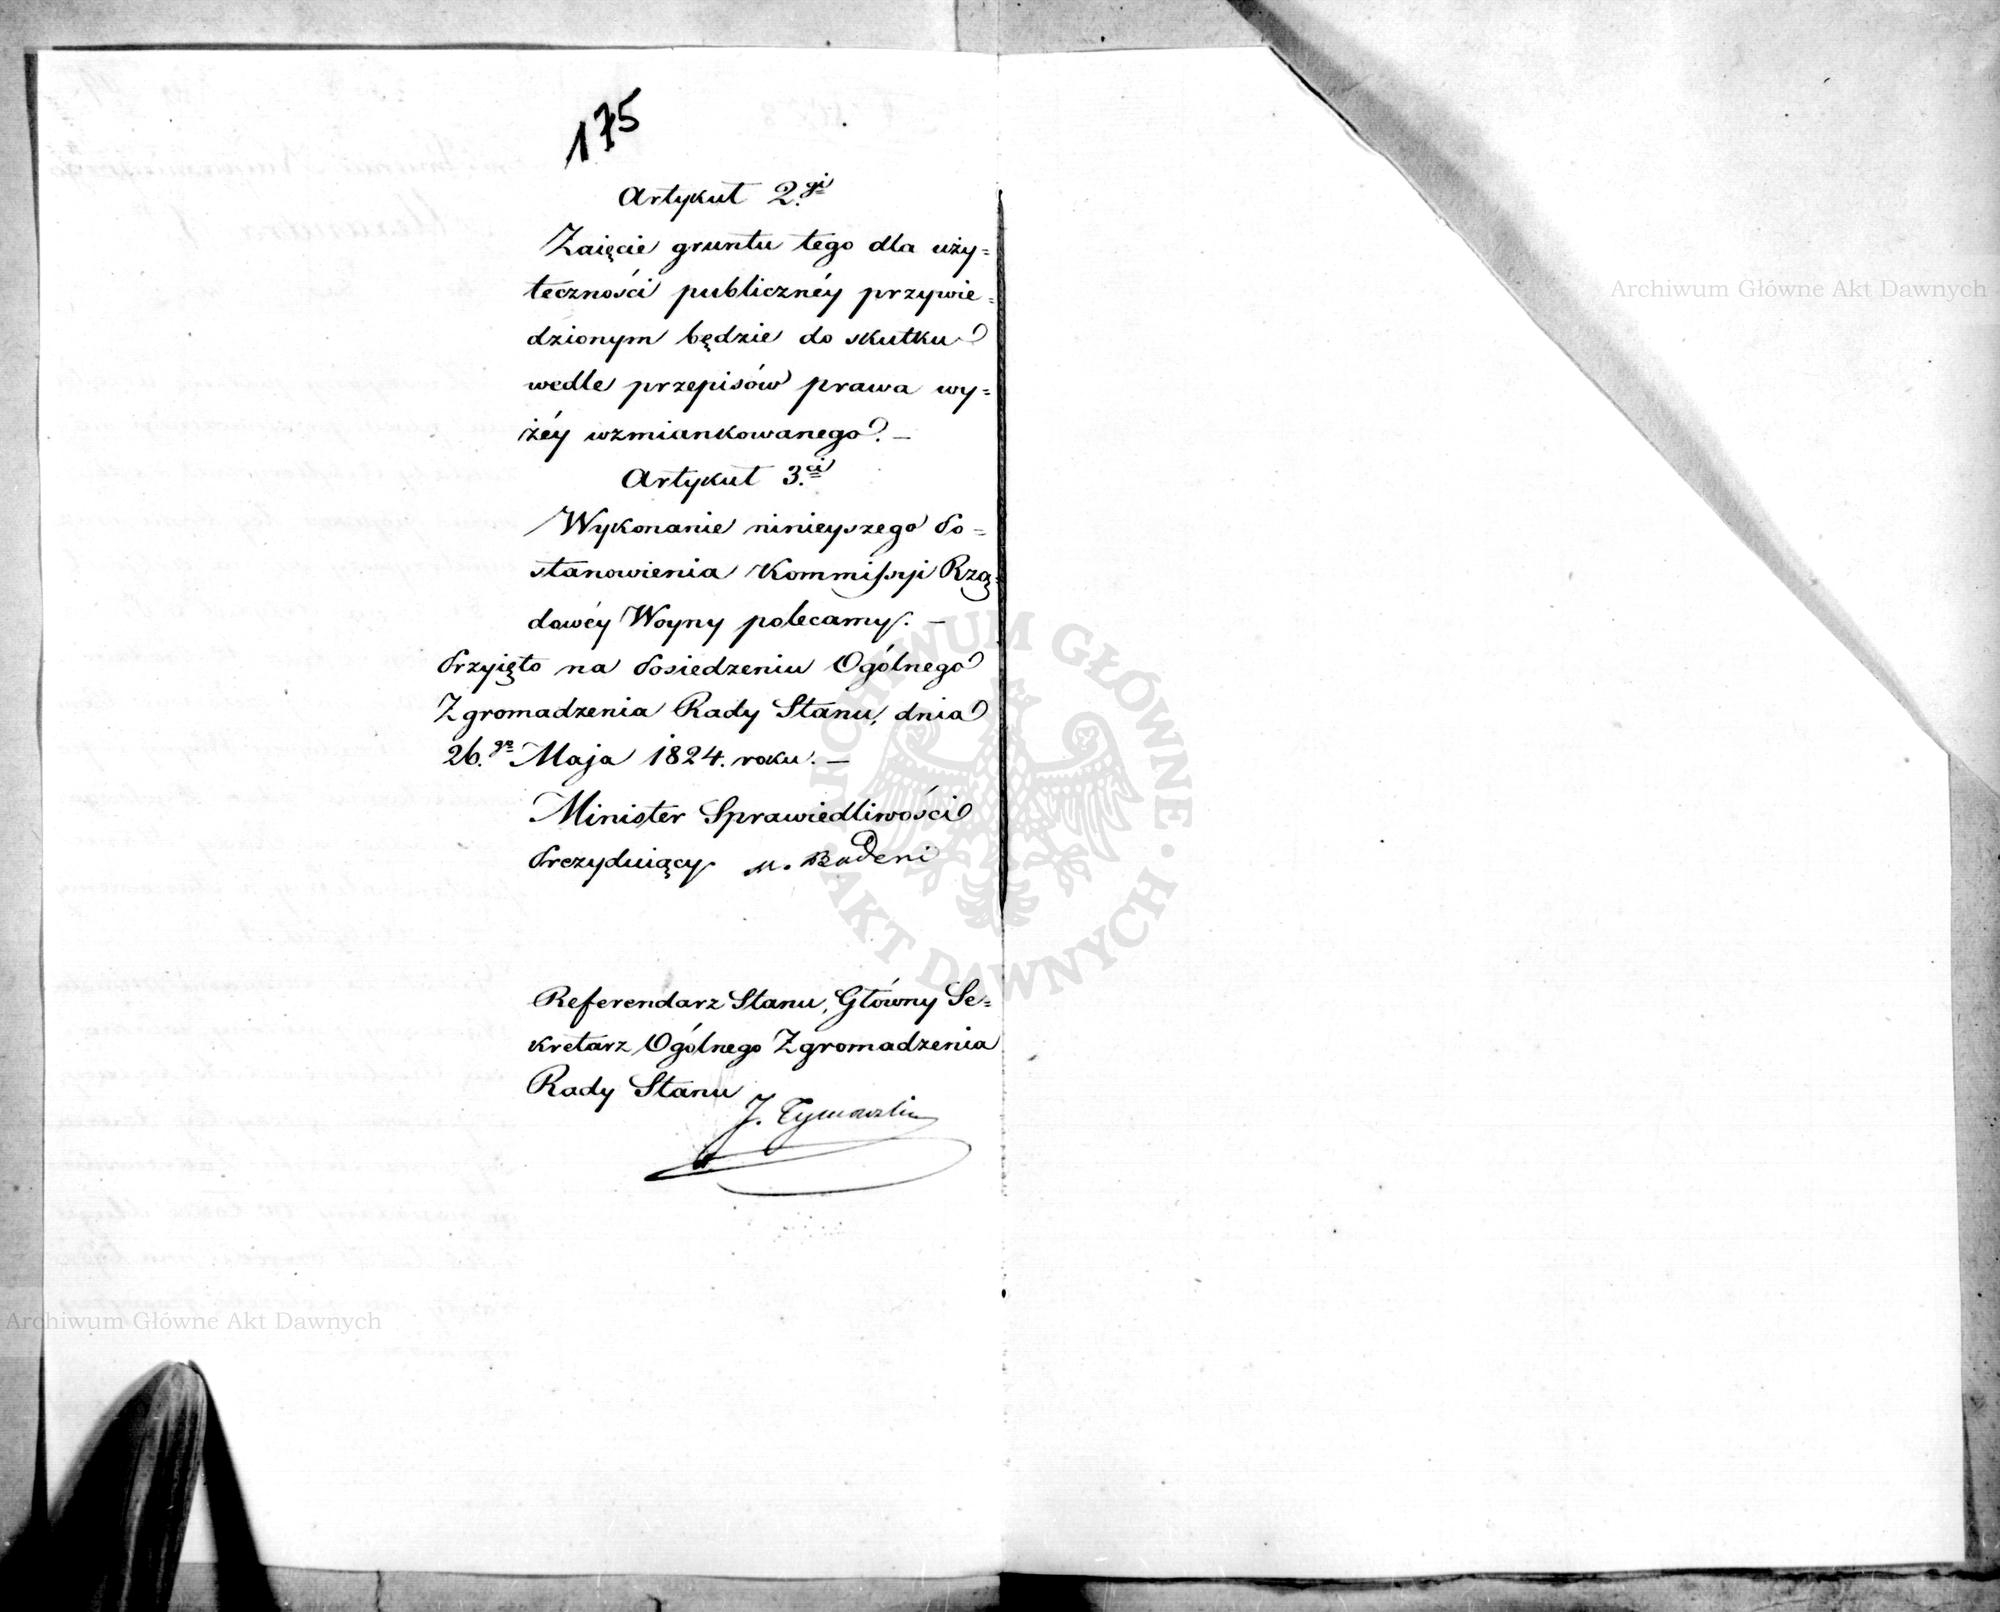 175
Artykuł 2.gi
Zaięcie gruntu tego dla uży=
teczności publicznéy przywie=
dzionym będzie do skutku
wedle przepisów prawa wy=
żéy wzmiankowanego. —
Artykuł 3.ci
Wykonanie ninieyszego Po=
stanowienia Kommissyi Rzą=
dowéy Woyny polecamy. —
Przyięto na Posiedzeniu Ogólnego
Zgromadzenia Rady Stanu, dnia
26.go Maja 1824. roku. —
Minister Sprawiedliwości
Prezyduiący. M. Badeni
Referendarz Stanu, Główny Se=
kretarz Ogólnego Zgromadzenia
Rady Stanu
J.
Archiwum Główne Akt Dawnych
Archiwum Główne Akt Dawnych
ARCHIWUM GŁÓWNE · AKT DAWNYCH ·